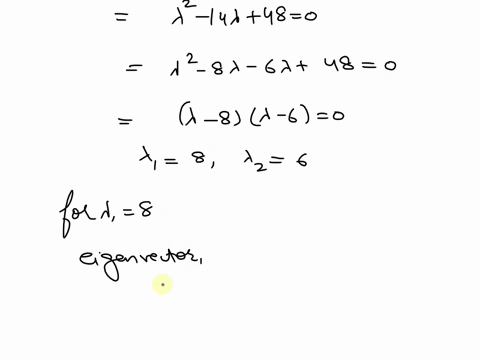 = λ²-14λ+48=0
= λ²-8λ-6λ+ 48=0
= (λ-8) (λ-6)=0
λ₁= 8, λ₂= 6
for λ₁=8
eigenvector,